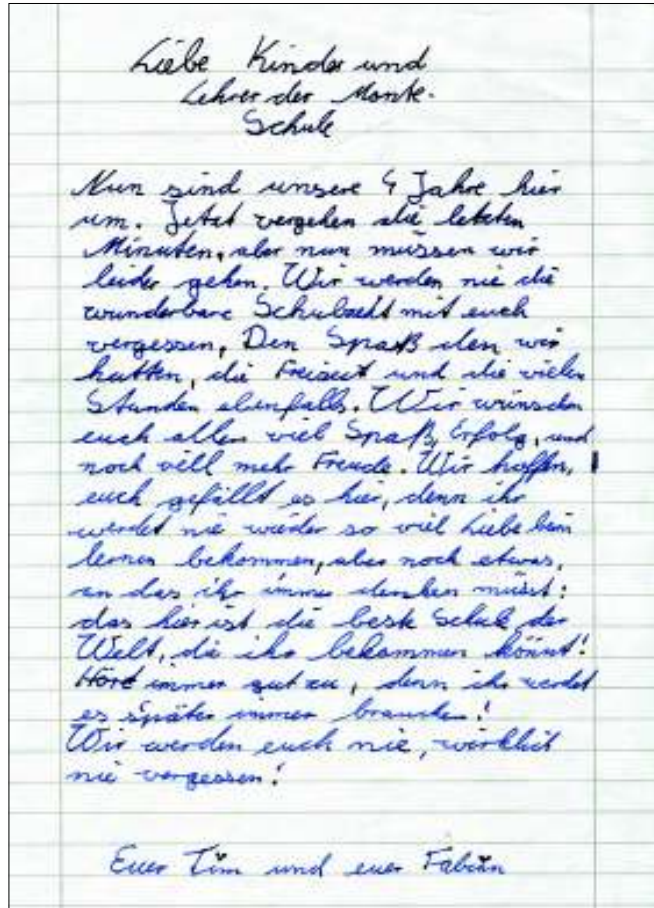 Liebe Kinder und
Lehrer der Monte-
Schule
Nun sind unsere 4 Jahre hier
um. Jetzt vergehen die letzten
Minuten, aber nun müssen wir
leider gehen. Wir werden nie die
wunderbare Schulzeit mit euch
vergessen, Den Spaß den wir
hatten, die Freizeit und die vielen
Stunden ebenfalls. Wir wünschen
euch allen viel Spaß, Erfolg, und
noch vill mehr Freude. Wir hoffen,
euch gefällt es hier, denn ihr
werdet nie wieder so viel Liebe beim
lernen bekommen, aber noch etwas,
an das ihr immer denken müsst:
das hier ist die beste Schule der
Welt, die ihr bekommen könnt!
Hört immer gut zu, denn ihr werdet
es später immer brauchen!
Wir werden euch nie, wirklich
nie vergessen!
Euer Tim und euer Fabian